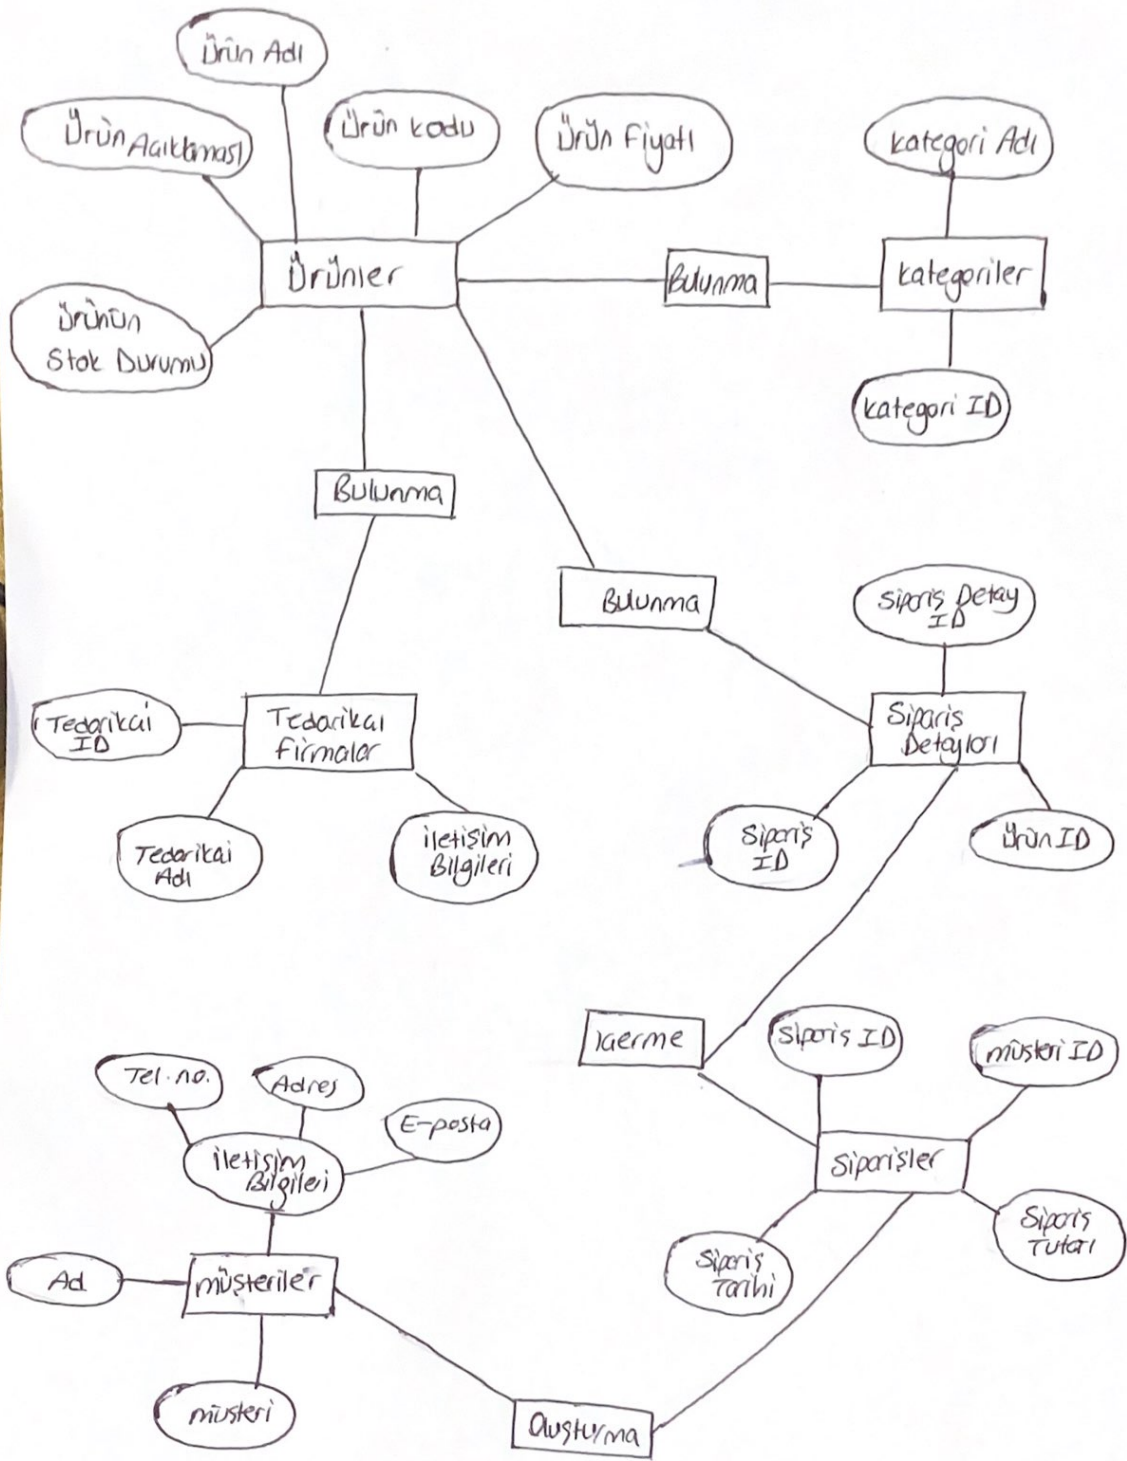 Ürün Adı
Ürün Açıklaması
Ürün Kodu
Ürün Fiyatı
Kategori Adı
Ürünler
Bulunma
Kategoriler
Ürünün
Stok Durumu
Kategori ID
Bulunma
Bulunma
Sipariş Detay
ID
Tedarikçi
ID
Tedarikçi
Firmalar
Sipariş
Detayları
Tedarikçi
Adı
İletişim
Bilgileri
Sipariş
ID
Ürün ID
İçerme
Sipariş ID
müşteri ID
Tel. no.
Adres
E-posta
İletişim
Bilgileri
Siparişler
Sipariş
Tutarı
Sipariş
Tarihi
Ad
müşteriler
müşteri
Oluşturma